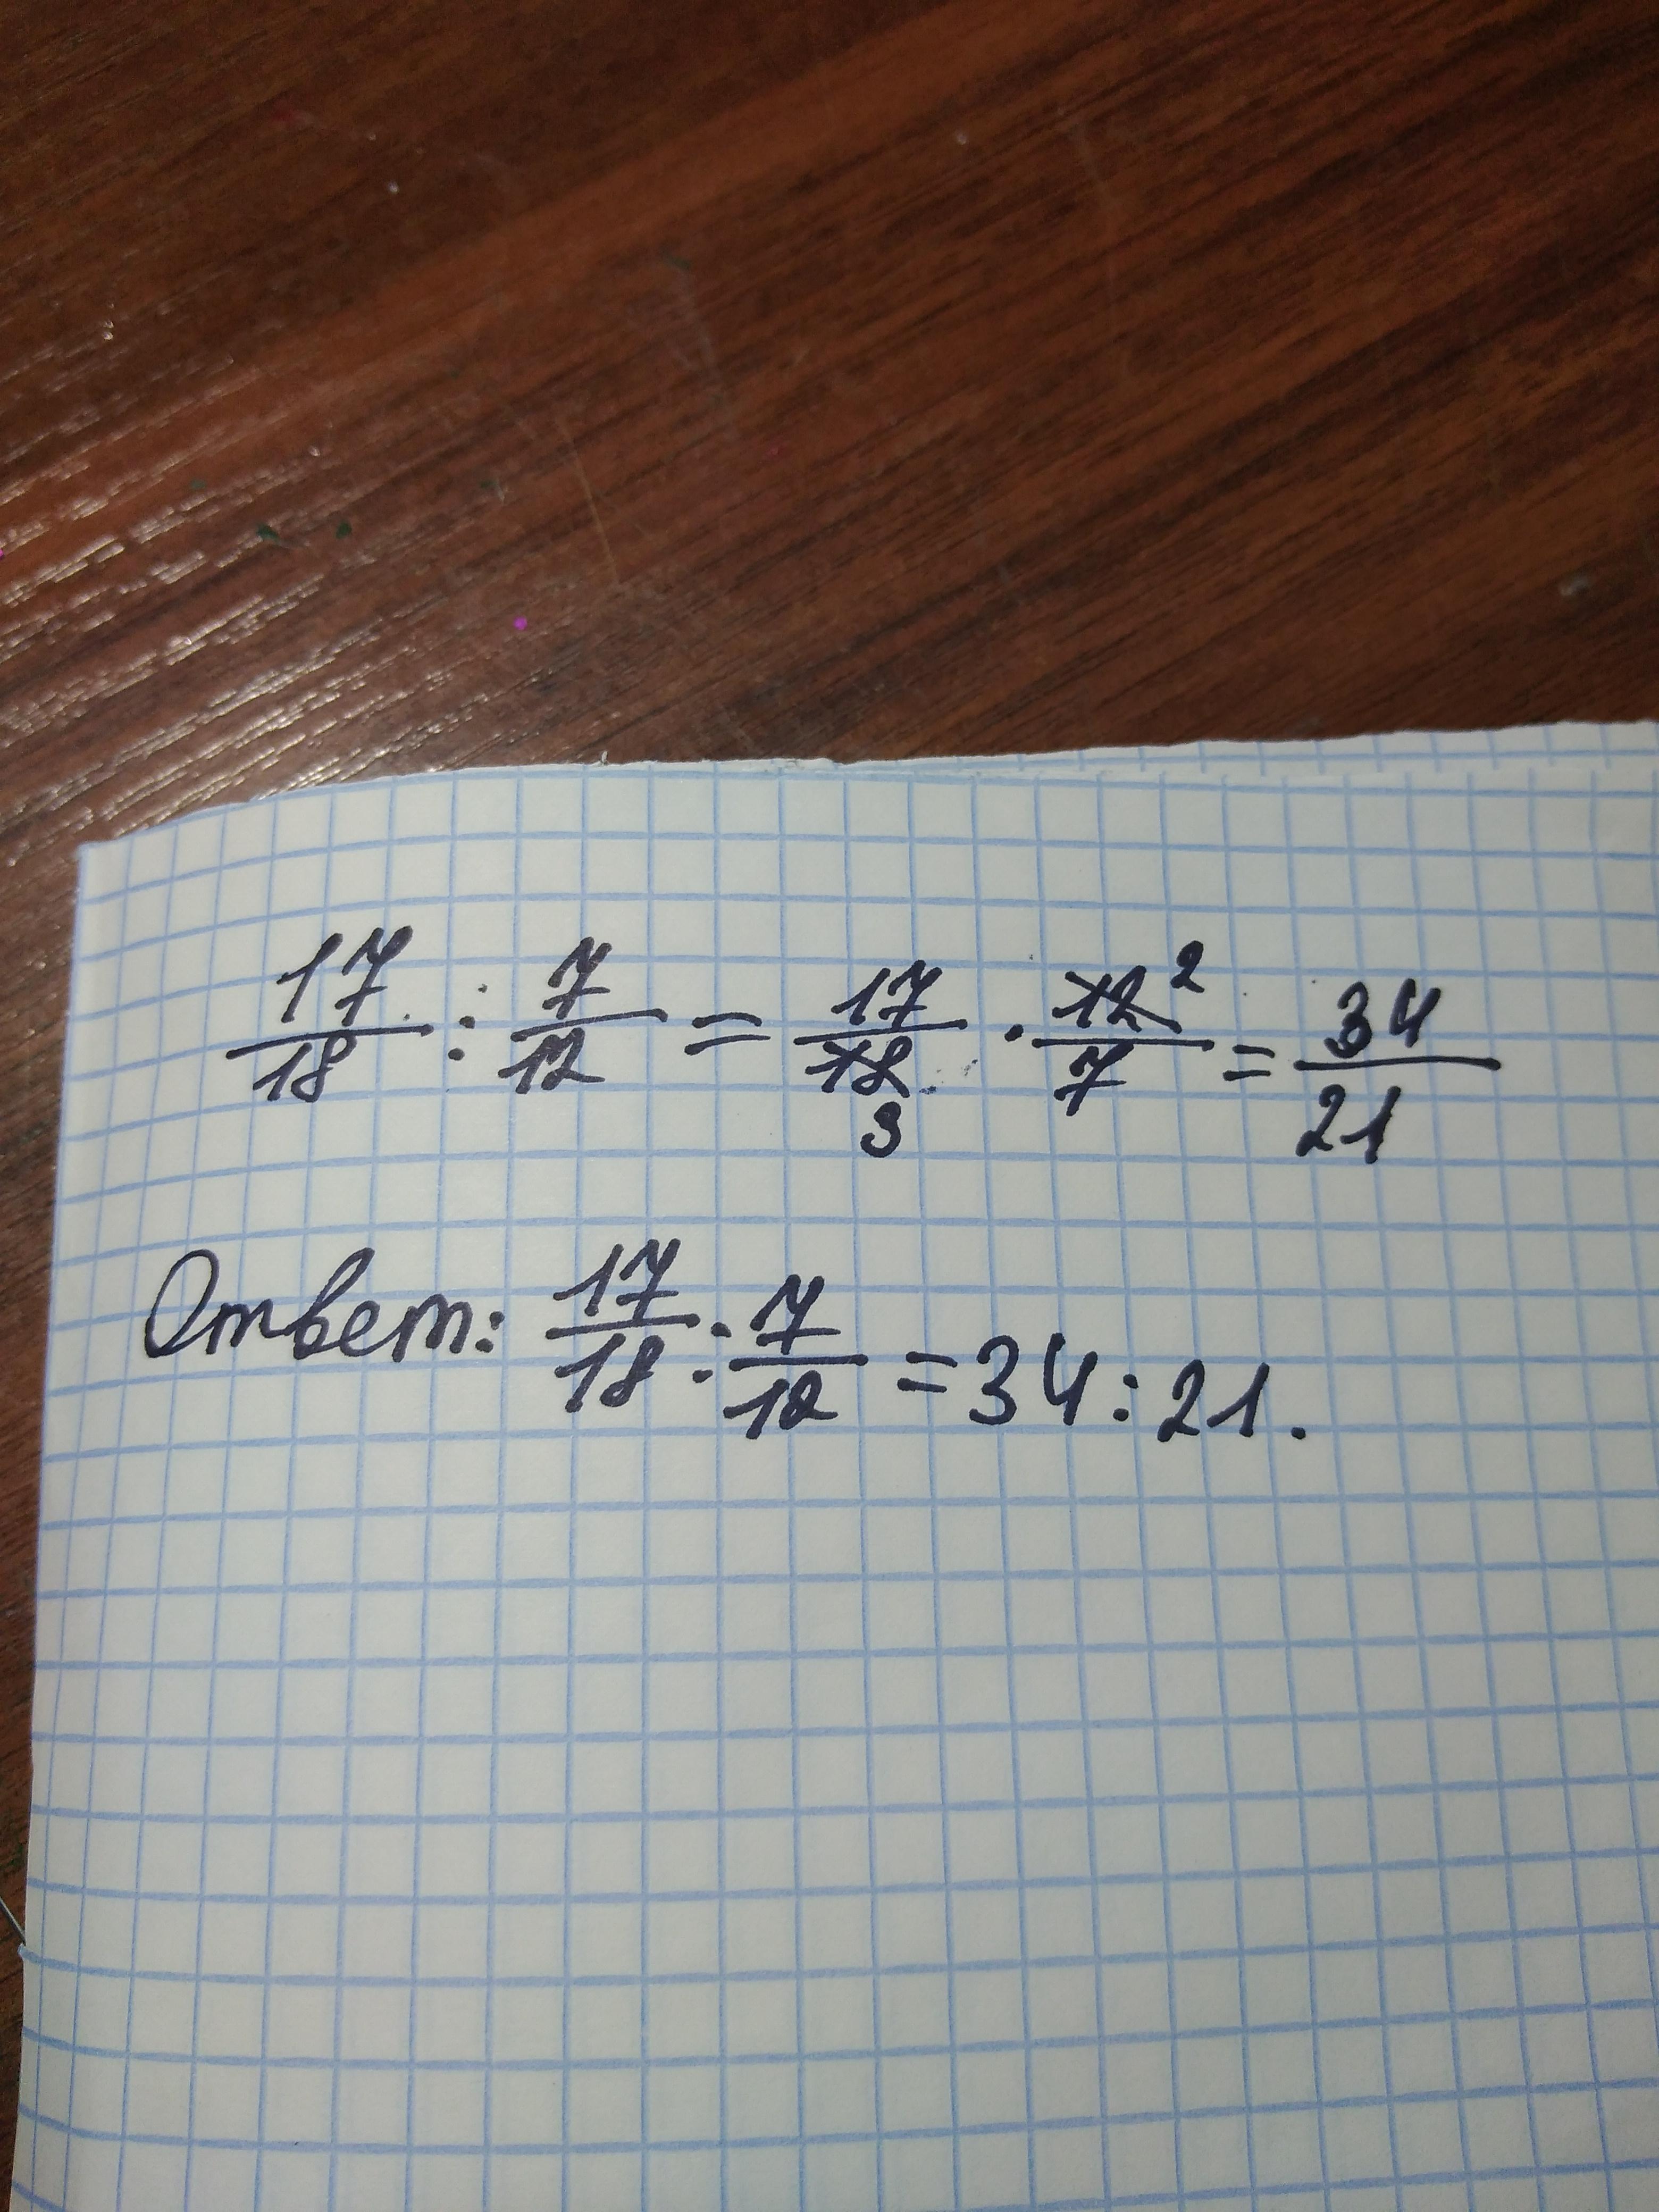 17/18 : 7/12 = 17/18 3 · 12 2/7 = 34/21
Ответ: 17/18 : 7/12 = 34 : 21.